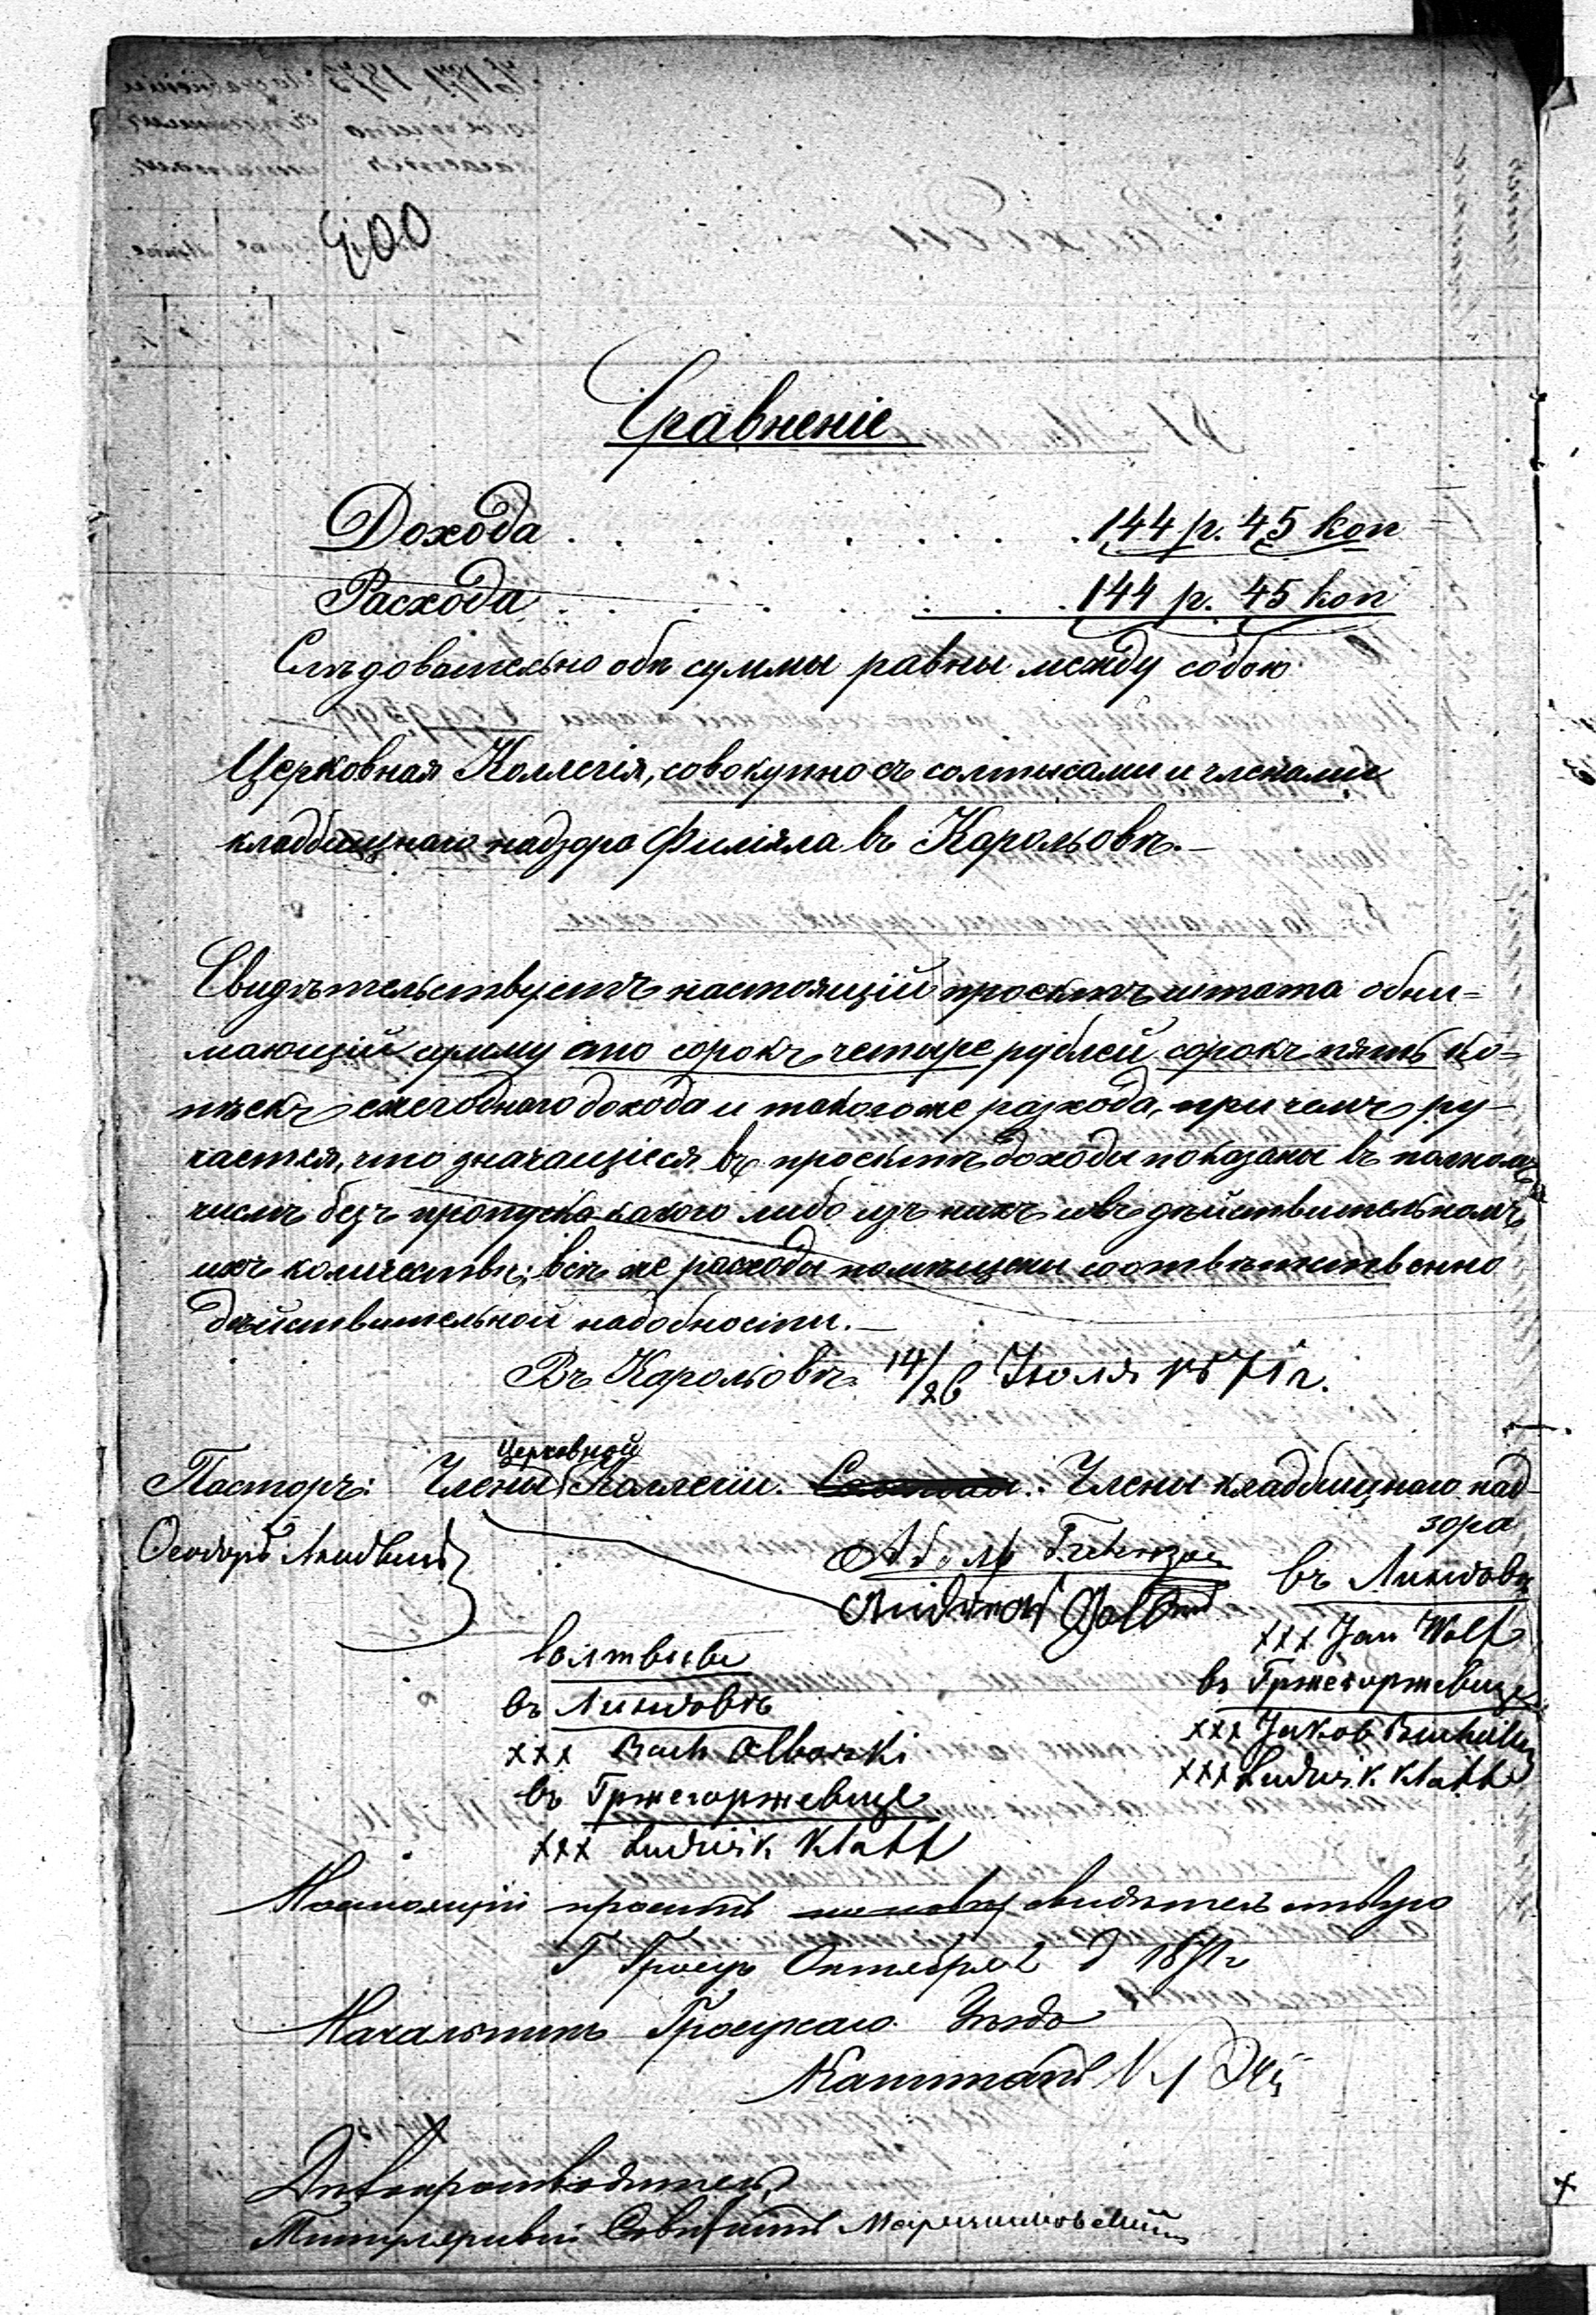 400
Сравненіе
Дохода . . . . . . . . . . 144 р. 45 коп
Расхода . . . . . . . . . 144 р. 45 коп
Слѣдовательно обѣ суммы равны между собою
Церковная Коллегія, совокупно съ солтысами и членами
кладбищнаго надзора Филіяла въ Карольовѣ.—
Свидѣтельствуетъ настоящій проектъ штата обни=
мающій сумму сто сорокъ четыре рублей сорокъ пять ко=
пѣекъ ежегоднаго дохода и такогоже разхода, при чемъ ру-
чается, что значащіеся въ проектѣ доходы показаны въ полномъ
числѣ безъ пропуска какого либо изъ нихъ и въ дѣйствительномъ
ихъ количествѣ; всѣ же расходы помѣщены соотвѣтственно
дѣйствительной надобности.—
Въ Карольовѣ 14/26 Іюля 1871 г.
Церковной
Пасторъ: Члены Коллегіи. Члены кладбищнаго над-
зора
Ѳеодоръ
въ Линдовѣ
xxx Jan Wolf
солтысы
въ Гржегоржевице
въ Линдовѣ
xxx Jakob
xxx
xxx Ludwik Klatt
въ Гржегоржевице
xxx Ludwik Klatt
Настоящій проектъ свидѣтельствую
Г Гроецъ Октября 2 д 1871 г
Начальникъ Гроецкаго Уѣзда
Капитанъ
Дѣлопроизводитель
Титулярный Совѣтникъ